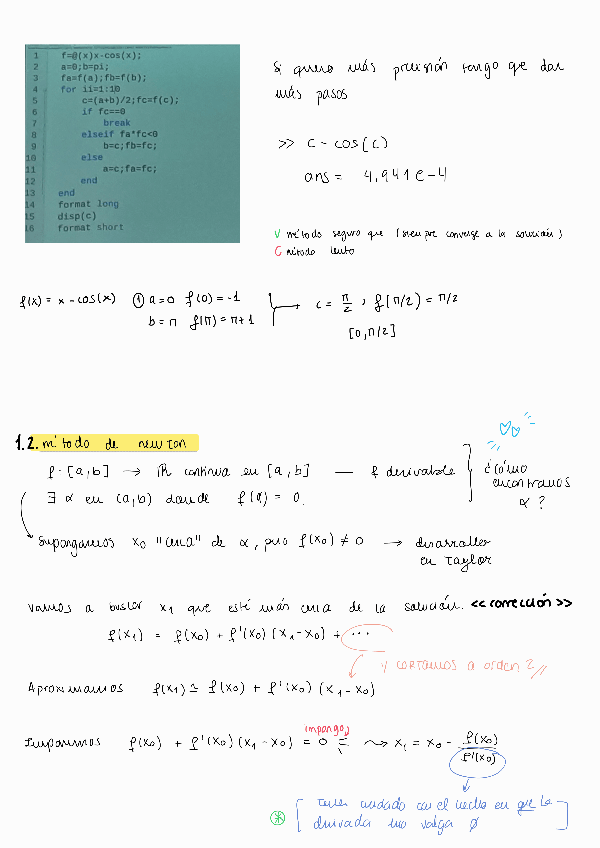 1 f=@(x)x-cos(x);
2 a=0;b=pi;
3 fa=f(a);fb=f(b);
4 for ii=1:10
5 c=(a+b)/2;fc=f(c);
6 if fc==0
7 break
8 elseif fa*fc<0
9 b=c;fb=fc;
10 else
11 a=c;fa=fc;
12 end
13 end
14 format long
15 disp(c)
16 format short
Si quiero más precisión tengo que dar
más pasos
>> c - cos(c)
ans = 4,941e-4
V método seguro que (siempre converge a la solución)
C método lento
f(x) = x - cos(x) ① a=0 f(0) = -1
b = π f(π) = π+1
c = π/2 , f(π/2) = π/2
[0, π/2]
1.2. método de newton
f: [a,b] → ℝ continua en [a,b] — f derivable
∃ α en (a,b) donde f(α) = 0.
¿cómo
encontramos
α?
Supongamos x₀ "cerca" de α, pero f(x₀) ≠ 0 → desarrollar
en Taylor
Vamos a buscar x₁ que esté más cerca de la solución. <<corrección>>
f(x₁) = f(x₀) + f'(x₀)(x₁-x₀) + ...
y cortamos a orden 2//
Aproximamos f(x₁) ≃ f(x₀) + f'(x₀)(x₁-x₀)
(impongo)
Imponemos f(x₀) + f'(x₀)(x₁-x₀) = 0 ⇝ x₁ = x₀ - f(x₀)/f'(x₀)
Tener cuidado con el hecho en que la
derivada no valga 0